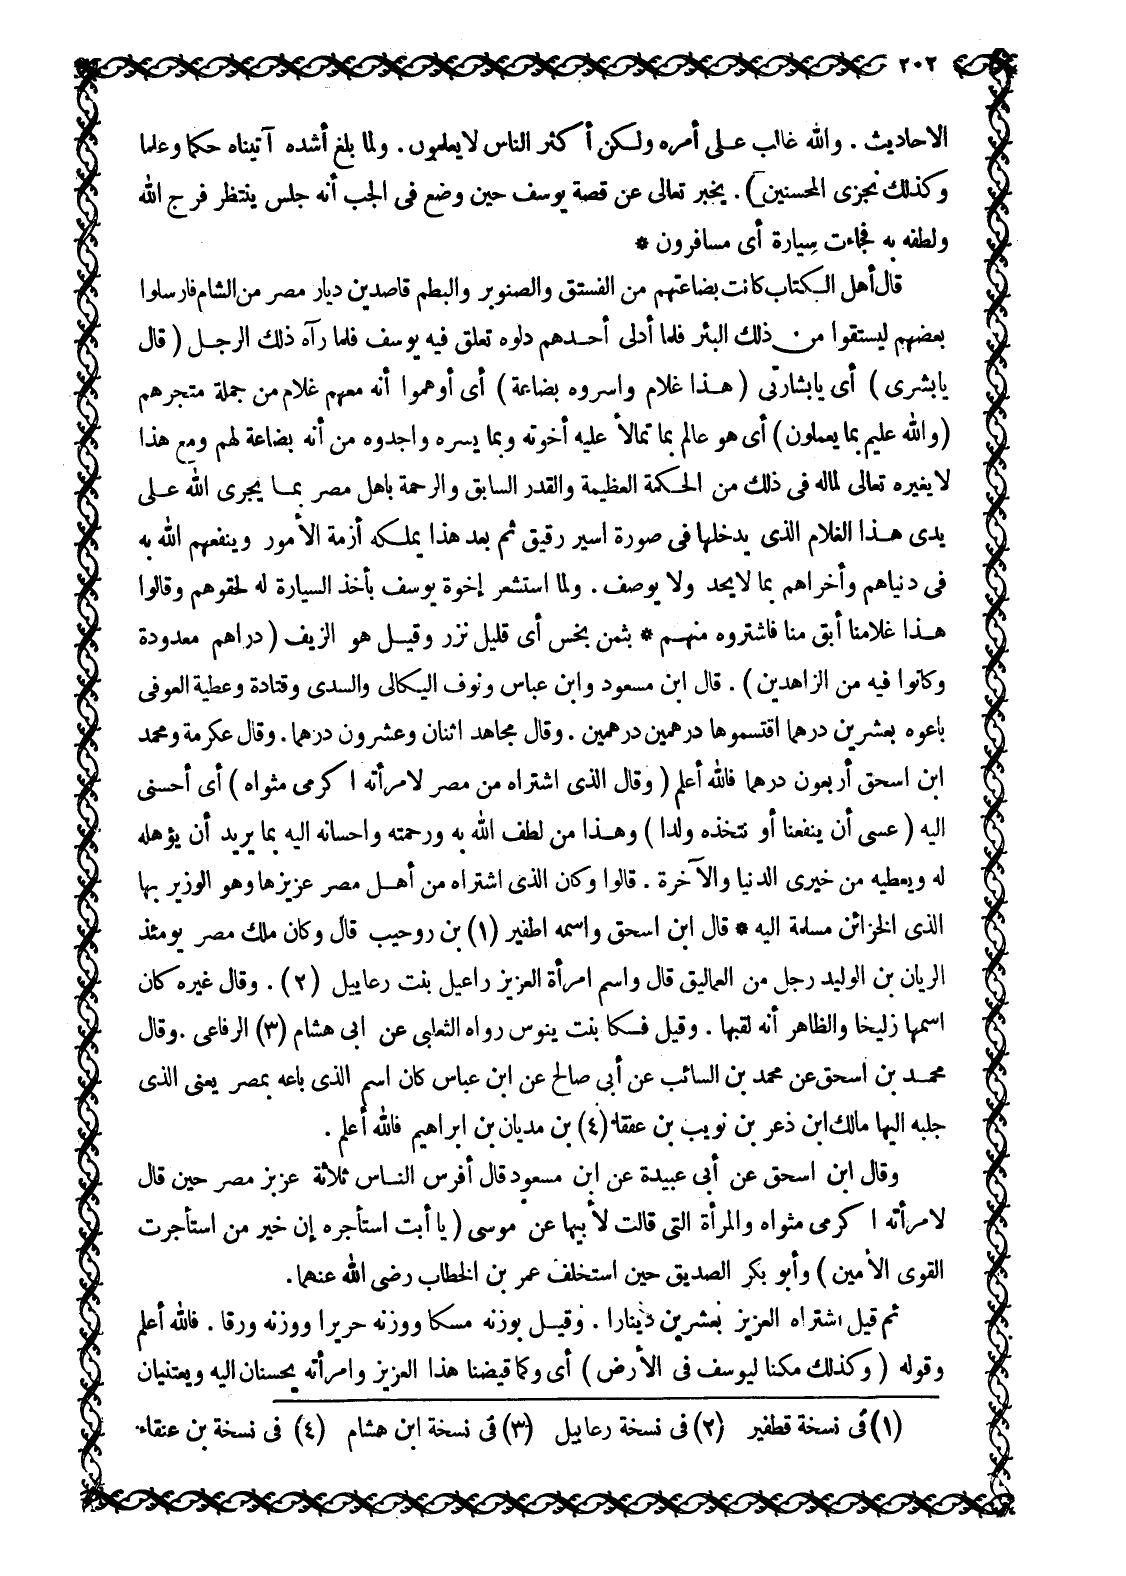 ٢٠٢
الاحاديث . والله غالب على أمره ولكن أكثر الناس لا يعلمون . ولما بلغ أشده آتيناه حكما وعلما
وكذلك نجزى المحسنين ) . يخبر تعالى عن قصة يوسف حين وضع فى الجب أنه جلس ينتظر فرج الله
ولطفه به فجاءت سيارة أى مسافرون *
قال أهل الكتاب كانت بضاعتهم من الفستق والصنوبر والبطم قاصدين ديار مصر من الشام فارسلوا
بعضهم ليستقوا من ذلك البئر فلما أدلى أحدهم دلوه تعلق فيه يوسف فلما رآه ذلك الرجل ( قال
يابشرى ) أى يابشارتى ( هذا غلام واسروه بضاعة ) أى أوهموا أنه معهم غلام من جملة متجرهم
( والله عليم بما يعملون ) أى هو عالم بما تمالأ عليه أخوته وبما يسره واجدوه من أنه بضاعة لهم ومع هذا
لا يغيره تعالى لما له فى ذلك من الحكمة العظيمة والقدر السابق والرحمة باهل مصر بما يجرى الله على
يدى هذا الغلام الذى يدخلها فى صورة اسير رقيق ثم بعد هذا يملكه أزمة الأمور وينفعهم الله به
فى دنياهم وأخراهم بما لا يحد ولا يوصف . ولما استشعر إخوة يوسف بأخذ السيارة له لحقوهم وقالوا
هذا غلامنا أبق منا فاشتروه منهم * بثمن بخس أى قليل نزر وقيل هو الزيف ( دراهم معدودة
وكانوا فيه من الزاهدين ) . قال ابن مسعود وابن عباس ونوف البكالى والسدى وقتادة وعطية العوفى
باعوه بعشرين درهما اقتسموها درهمين درهمين . وقال مجاهد اثنان وعشرون درهما . وقال عكرمة ومحمد
ابن اسحق أربعون درهما فالله أعلم ( وقال الذى اشتراه من مصر لامرأته اكرمى مثواه ) أى أحسنى
اليه ( عسى أن ينفعنا أو نتخذه ولدا ) وهذا من لطف الله به ورحمته واحسانه اليه بما يريد أن يؤهله
له ويعطيه من خيرى الدنيا والآخرة . قالوا وكان الذى اشتراه من أهل مصر عزيزها وهو الوزير بها
الذى الخزائن مسلمة اليه * قال ابن اسحق واسمه اطفير (١) بن روحيب قال وكان ملك مصر يومئذ
الريان بن الوليد رجل من العماليق قال واسم امرأة العزيز راعيل بنت رعاييل (٢) . وقال غيره كان
اسمها زليخا والظاهر أنه لقبها . وقيل فكا بنت ينوس رواه الثعلبى عن ابى هشام (٣) الرفاعى . وقال
محمد بن اسحق عن محمد بن السائب عن أبى صالح عن ابن عباس كان اسم الذى باعه بمصر يعنى الذى
جلبه اليها مالك ابن ذعر بن نويب بن عفقا (٤) بن مديان بن ابراهيم فالله أعلم .
وقال ابن اسحق عن أبى عبيدة عن ابن مسعود قال أفرس الناس ثلاثة عزيز مصر حين قال
لامرأته اكرمى مثواه والمرأة التى قالت لأبيها عن موسى ( يا أبت استأجره إن خير من استأجرت
القوى الأمين ) وأبو بكر الصديق حين استخلف عمر بن الخطاب رضى الله عنهما .
ثم قيل اشتراه العزيز بعشرين دينارا . وقيل بوزنه مسكا ووزنه حريرا ووزنه ورقا . فالله أعلم
وقوله ( وكذلك مكنا ليوسف فى الأرض ) أى وكما قيضنا هذا العزيز وامرأته يحسنان اليه ويعتنيان
(١) فى نسخة قطفير (٢) فى نسخة رعابيل (٣) فى نسخة ابن هشام (٤) فى نسخة بن عنقاء